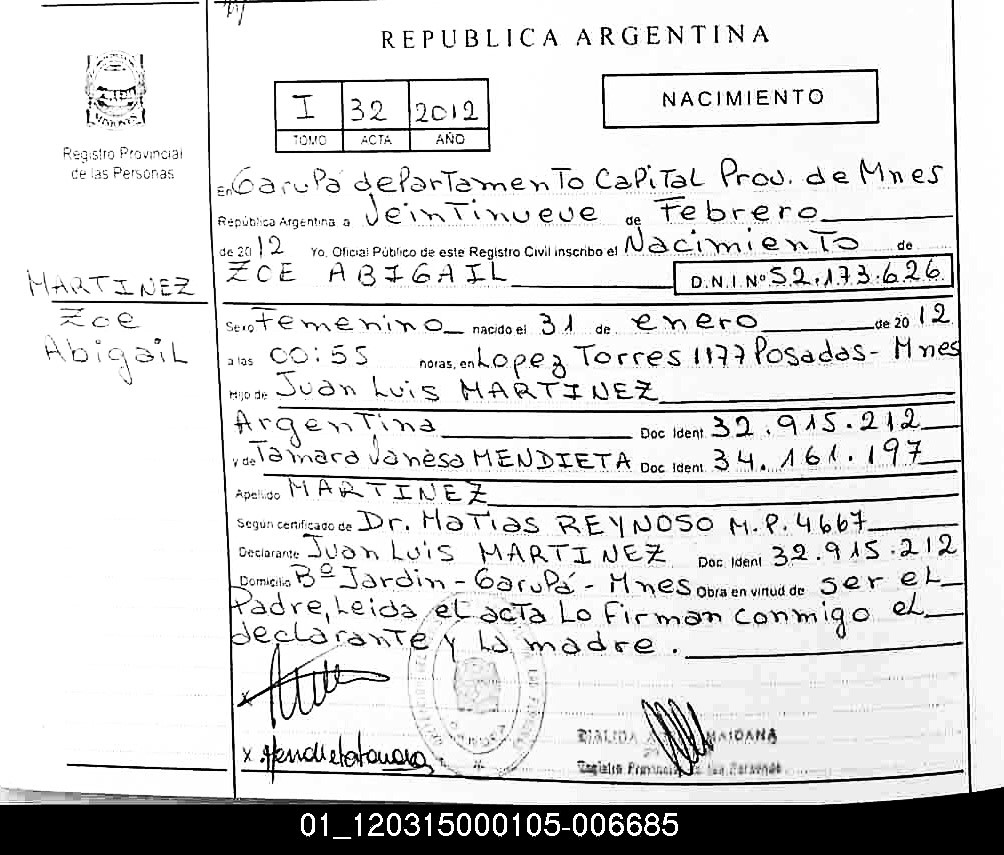 REPUBLICA ARGENTINA
I 32 2012
TOMO ACTA AÑO
NACIMIENTO
Registro Provincial
de las Personas
En Garupá departamento Capital Prov. de Mnes
República Argentina a Veintinueve de Febrero
de 2012 Yo, Oficial Público de este Registro Civil inscribo el Nacimiento de
ZOE ABIGAIL D.N.I. Nº 52.173.626
MARTINEZ
Zoe
Abigail
Sexo Femenino nacido el 31 de enero de 2012
a las 00:55 horas, en Lopez Torres 1177 Posadas - Mnes
Hijo de Juan Luis MARTINEZ
Argentina Doc Ident 32.915.212
y de Tamara Vanesa MENDIETA Doc Ident 34.161.197
Apellido MARTINEZ
Según certificado de Dr. Matias REYNOSO M.P. 4667
Declarante Juan Luis MARTINEZ Doc Ident 32.915.212
Domicilio Bº Jardin - Garupá - Mnes Obra en virtud de ser el
Padre, Leida el acta Lo firman conmigo el
declarante y La madre.
x
x Mendieta Tamara
MAIDANA
Registro Provincial de las Personas
01_120315000105-006685